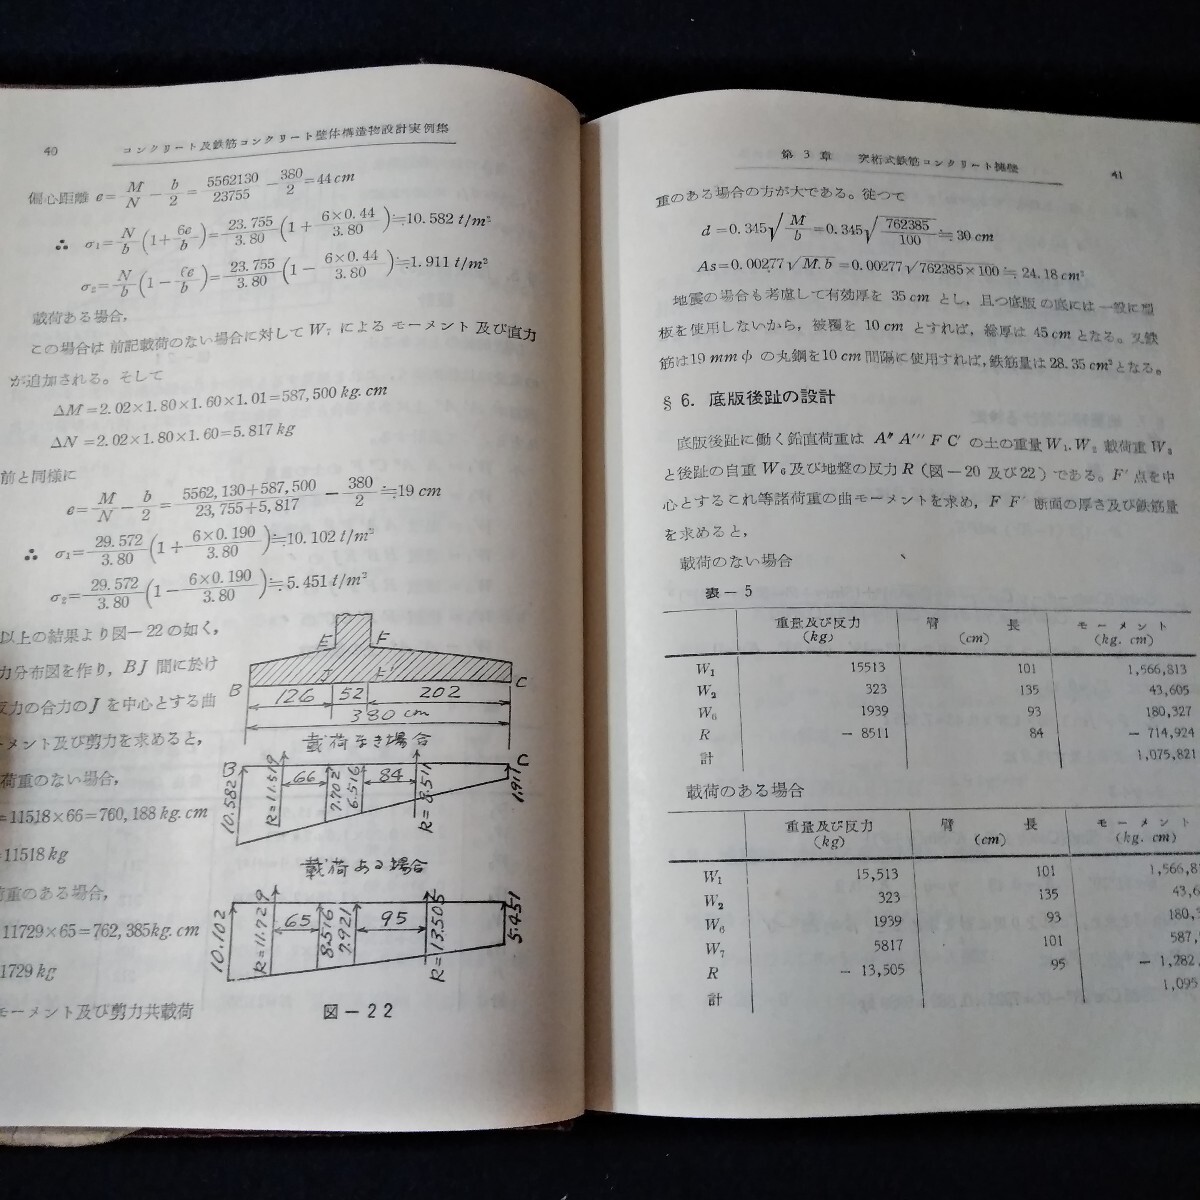 40 コンクリート及鉄筋コンクリート壁体構造物設計実例集
偏心距離 e = M/N − b/2 = 5562130/23755 − 380/2 = 44 cm
∴ σ₁ = N/b (1 + 6e/b) = 23.755/3.80 (1 + 6×0.44/3.80) ≒ 10.582 t/m²
σ₂ = N/b (1 − 6e/b) = 23.755/3.80 (1 − 6×0.44/3.80) ≒ 1.911 t/m²
載荷ある場合,
この場合は前記載荷のない場合に対して W₇ によるモーメント及び直力
が追加される。そして
△M = 2.02×1.80×1.60×1.01 = 587,500 kg. cm
△N = 2.02×1.80×1.60 = 5.817 kg
前と同様に
e = M/N − b/2 = 5562,130+587,500/23,755+5,817 − 380/2 ≒ 19 cm
∴ σ₁ = 29.572/3.80 (1 + 6×0.190/3.80) ≒ 10.102 t/m²
σ₂ = 29.572/3.80 (1 − 6×0.190/3.80) ≒ 5.451 t/m²
以上の結果より図−22の如く,
力分布図を作り, BJ 間に於け
反力の合力のJを中心とする曲
メント及び剪力を求めると,
荷重のない場合,
=11518×66=760,188 kg. cm
=11518 kg
荷重のある場合,
11729×65=762,385 kg. cm
1729 kg
モーメント及び剪力共載荷
E F
J F'
B C
126 52 202
380 cm
載荷なき場合
B C
10.582 R=11.519 66 7.702 6.516 84 R=8.511 1.911
載荷ある場合
10.102 R=11.729 65 8.516 7.921 95 R=13.505 5.451
図−22
第3章 突桁式鉄筋コンクリート擁壁 41
重のある場合の方が大である。従つて
d = 0.345√M/b = 0.345√762385/100 ≒ 30 cm
As = 0.00277√M.b = 0.00277√762385×100 ≒ 24.18 cm²
地震の場合も考慮して有効厚を 35 cm とし, 且つ底版の底には一般に型
板を使用しないから, 被覆を 10 cm とすれば, 総厚は 45 cm となる。又鉄
筋は19 mm φ の丸鋼を10 cm 間隔に使用すれば, 鉄筋量は 28.35 cm² となる。
§ 6. 底版後趾の設計
底版後趾に働く鉛直荷重は A″ A‴ F C′ の土の重量 W₁. W₂ 載荷重 W₃
と後趾の自重 W₆ 及び地盤の反力 R (図−20 及び22) である。F′ 点を中
心とするこれ等諸荷重の曲モーメントを求め, F F′ 断面の厚さ及び鉄筋量
を求めると,
載荷のない場合
表−5
重量及び反力 (kg) 臂 長 (cm) モーメント (kg. cm)
W₁ 15513 101 1,566,813
W₂ 323 135 43,605
W₆ 1939 93 180,327
R − 8511 84 − 714,924
計 1,075,821
載荷のある場合
重量及び反力 (kg) 臂 長 (cm) モーメント (kg. cm)
W₁ 15,513 101 1,566,8
W₂ 323 135 43,6
W₆ 1939 93 180,
W₇ 5817 101 587,
R − 13,505 95 − 1,282,
計 1,095